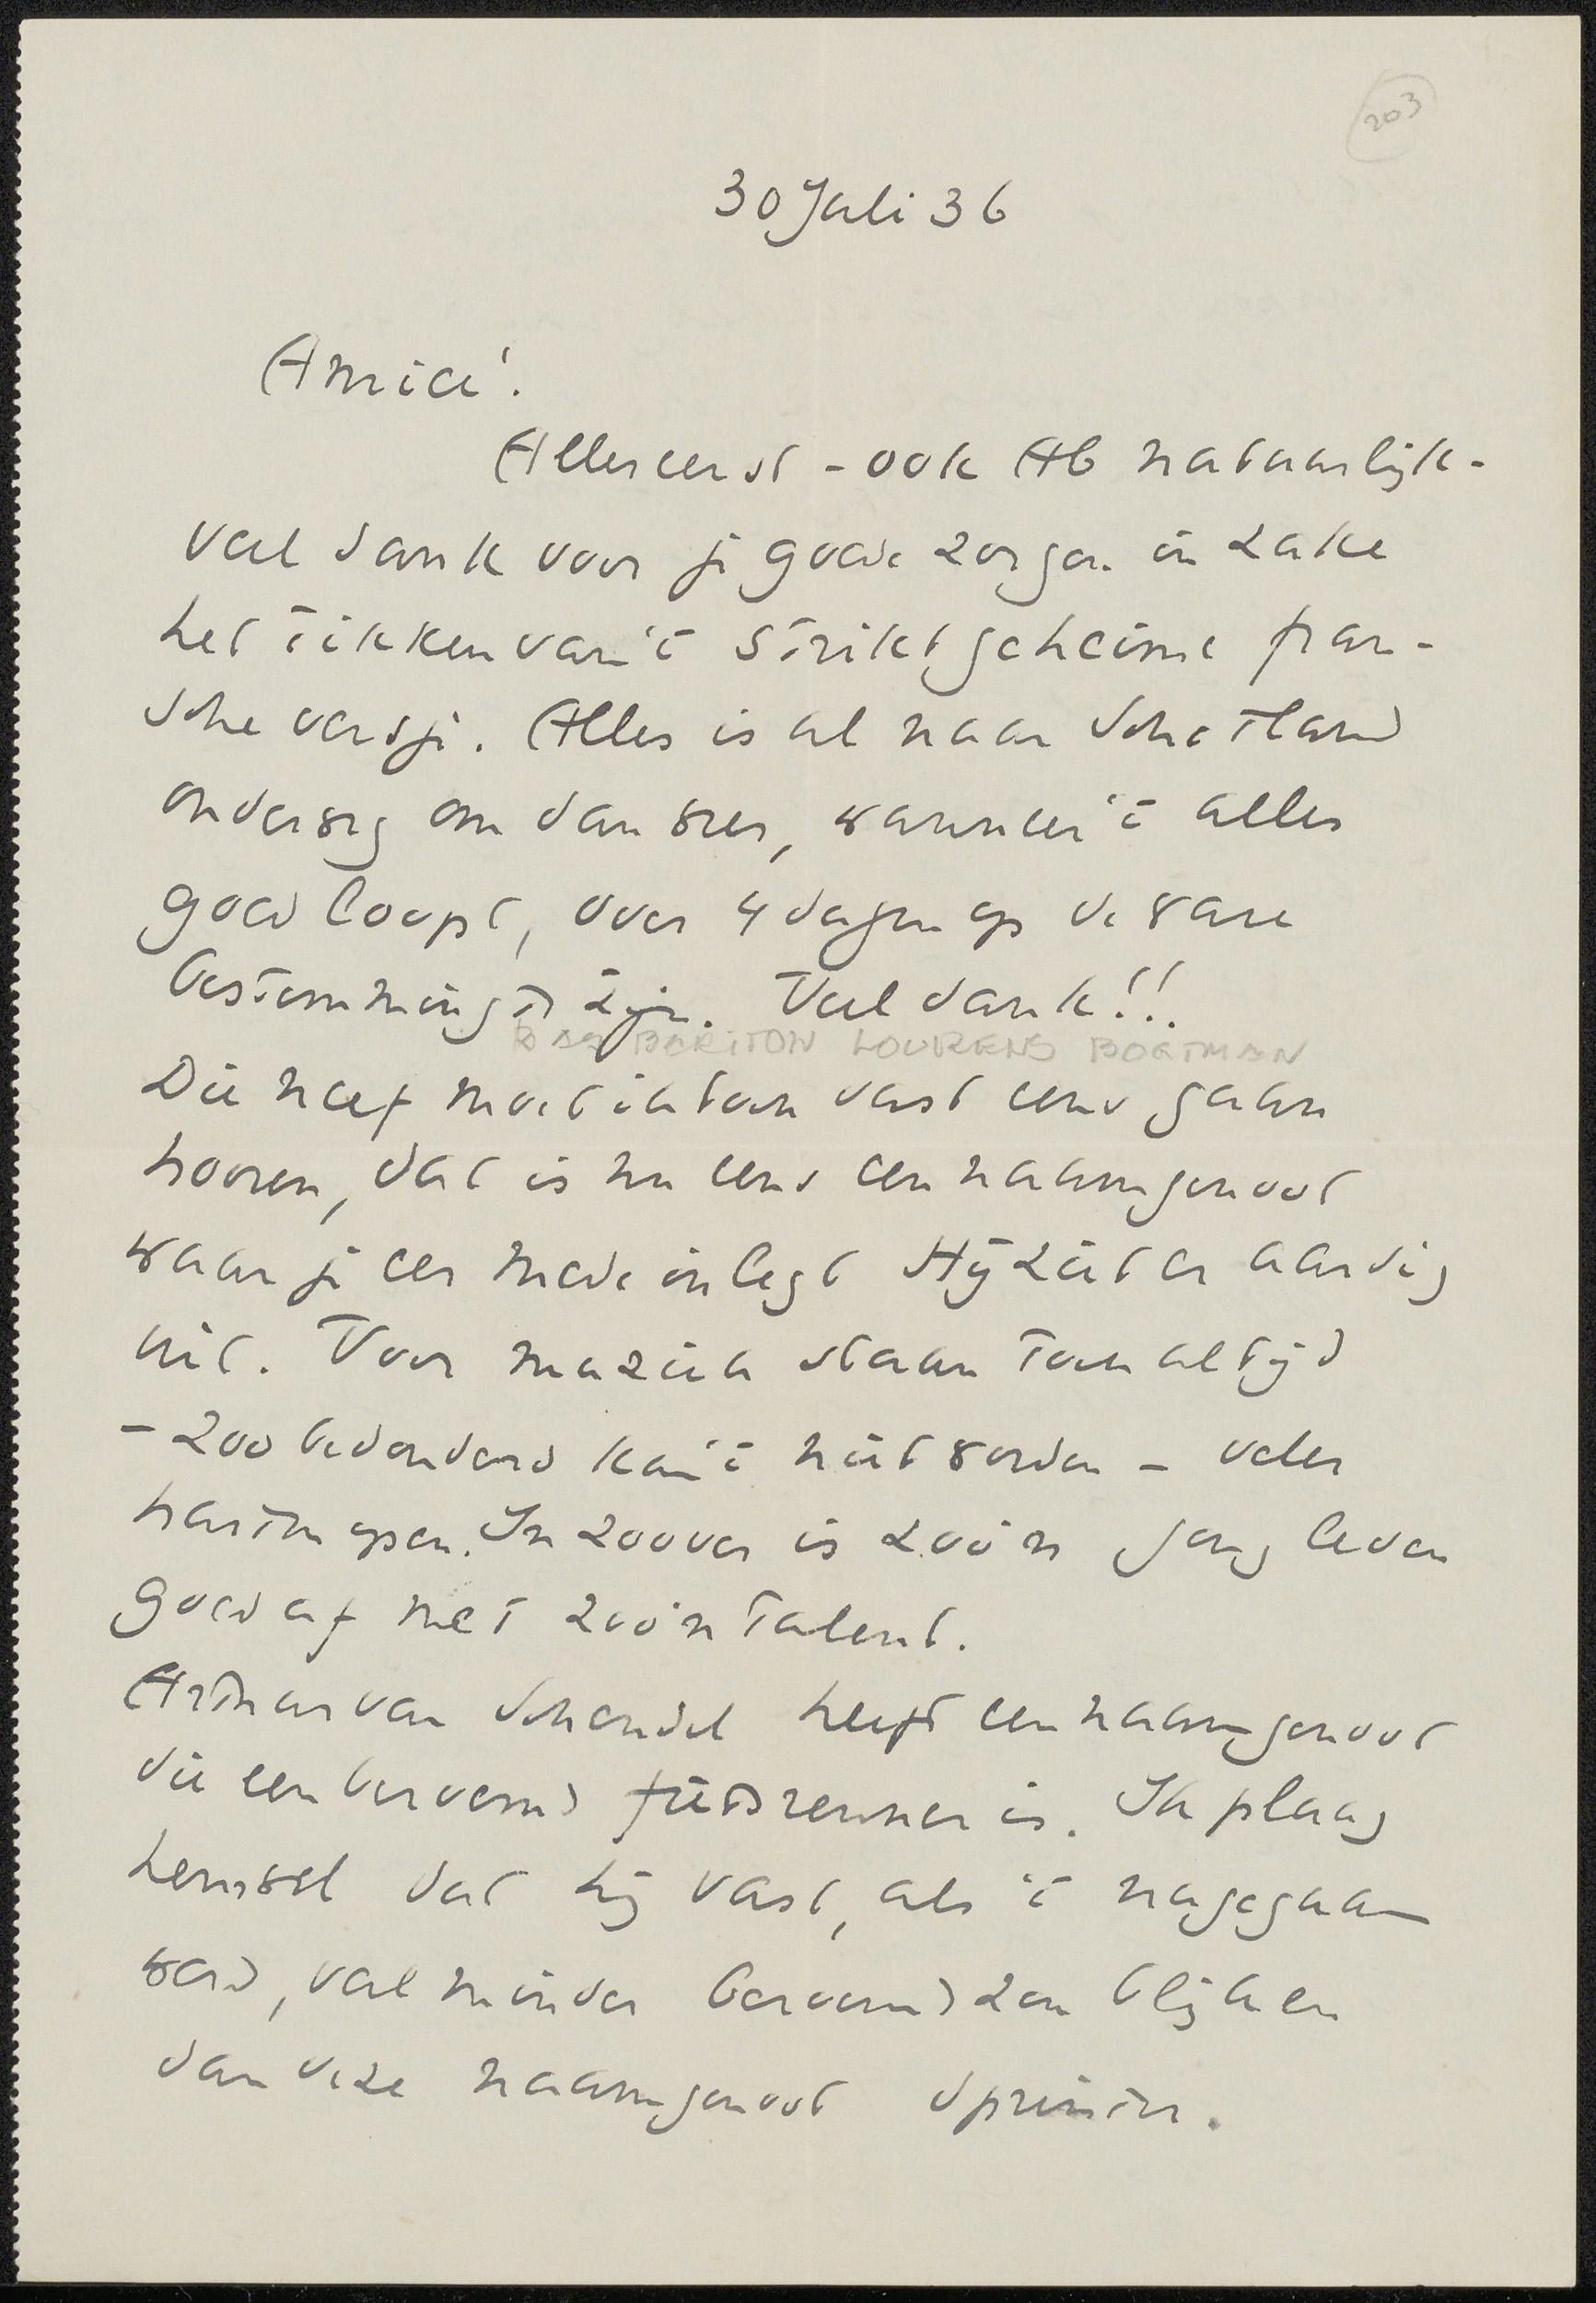 203
30 Juli 36
Amice!
Allereerst - ook Ab natuurlijk -
veel dank voor je goede zorgen in zake
het tikken van 't strikt geheime fran-
sche versje. Alles is al naar Schotland
onderweg om dan weer, wanneer 't alles
goed loopt, over 4 dagen op de ware
bestemming te zijn. Veel dank!!
BAS BARITON LOURENS BOGTMAN
Die neef moet ik toch vast eens gaan
hooren, dat is nu eens een naamgenoot
waar je eer mede inlegt Hij ziet er aardig
uit. Voor muziek staan toch altijd
- zoo bedonderd kan 't niet worden - veler
harten open. In zoover is zoo'n jong leven
goed af met zoo'n talent.
Arthur van Schendel heeft een naamgenoot
die een beroemd fietsrenner is. Ik plaag
hem wel dat hij vast, als 't nagegaan
werd, veel minder beroemd zou blijken
dan deze naamgenoot sprinter.